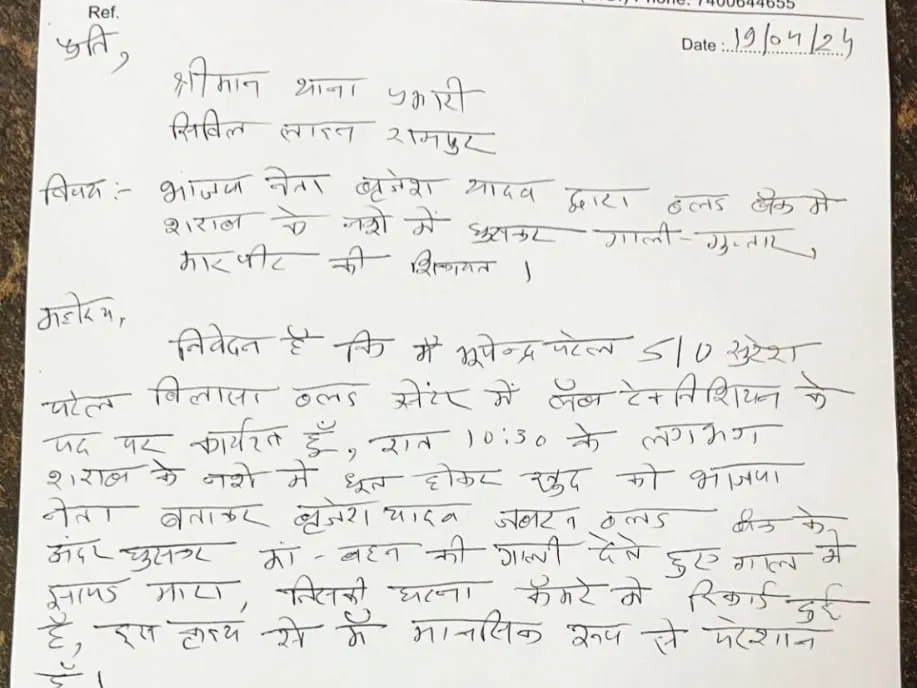 Phone: 7400644655
Ref.
Date :..19/04/24
प्रति,
श्रीमान थाना प्रभारी
सिविल लाइन रामपुर
विषय :- भाजपा नेता बृजेश यादव द्वारा ब्लड बैंक मे
शराब के नशे में घुसकर गाली-गुप्तार,
मारपीट की शिकायत ।
महोदय,
निवेदन है कि मैं भूपेन्द्र पटेल S/O सुरेश
पटेल बिलासा ब्लड सेंटर में लैब टेक्निशियन के
पद पर कार्यरत हूँ, रात 10:30 के लगभग
शराब के नशे मे धूत होकर खुद को भाजपा
नेता बताकर बृजेश यादव जबरन ब्लड बैंक के
अंदर घुसकर मां-बहन की गाली देते हुए गाल मे
झापड मारा, जिसकी घटना कैमरे मे रिकार्ड हुई
है, इस से मैं मानसिक रूप से परेशान
हूँ।